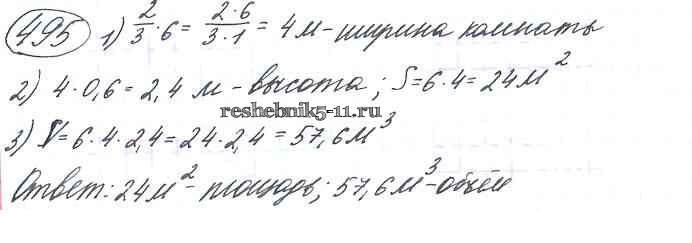 495 1) 2/3 · 6 = 2·6/3·1 = 4 м - ширина комнаты
2) 4 · 0,6 = 2,4 м - высота; S = 6 · 4 = 24 м²
reshebnik5-11.ru
3) V = 6 · 4 · 2,4 = 24 · 2,4 = 57,6 м³
Ответ: 24 м² - площадь; 57,6 м³ - объём